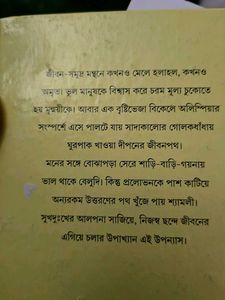 জীবন-সমুদ্র মন্থনে কখনও মেলে হলাহল, কখনও
অমৃত। ভুল মানুষকে বিশ্বাস করে চরম মূল্য চুকোতে
হয় মৃন্ময়ীকে। আবার এক বৃষ্টিভেজা বিকেলে অলিম্পিয়ার
সংস্পর্শে এসে পালটে যায় সাদাকালোর গোলকধাঁধায়
ঘুরপাক খাওয়া দীপনের জীবনপথ।
মনের সঙ্গে বোঝাপড়া সেরে শাড়ি-বাড়ি-গয়নায়
ভাল থাকে বেলুদি। কিন্তু প্রলোভনকে পাশ কাটিয়ে
অন্যরকম উত্তরণের পথ খুঁজে পায় শ্যামলী।
সুখদুঃখের আলপনা সাজিয়ে, নিজস্ব ছন্দে জীবনের
এগিয়ে চলার উপাখ্যান এই উপন্যাস।